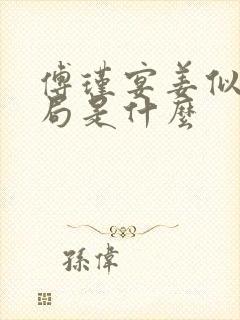 傅瑾宴姜似
局是什麼
孫偉